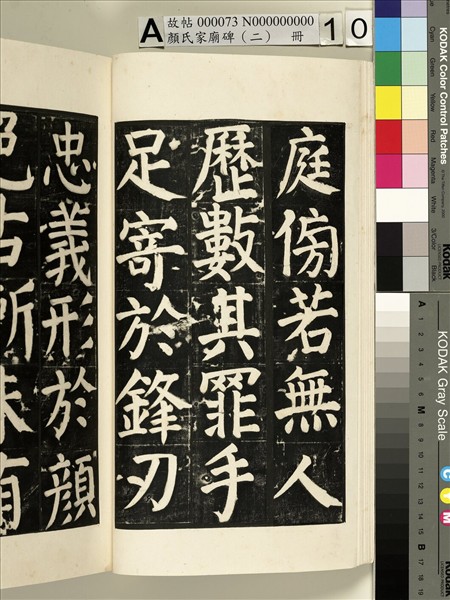 A
故帖 000073 N000000000
顏氏家廟碑（二） 冊
1 0
庭傍若無人
歷數其罪手
足寄於鋒刃
忠義形於顏
色古所未有
KODAK Color Control Patches
Blue
Cyan
Green
Yellow
Red
Magenta
White
3/Color
Black
Kodak
KODAK Gray Scale
A 1 2 3 4 5 6 M 8 9 10 11 12 13 14 15 B 17 18 19
C Y M
Kodak